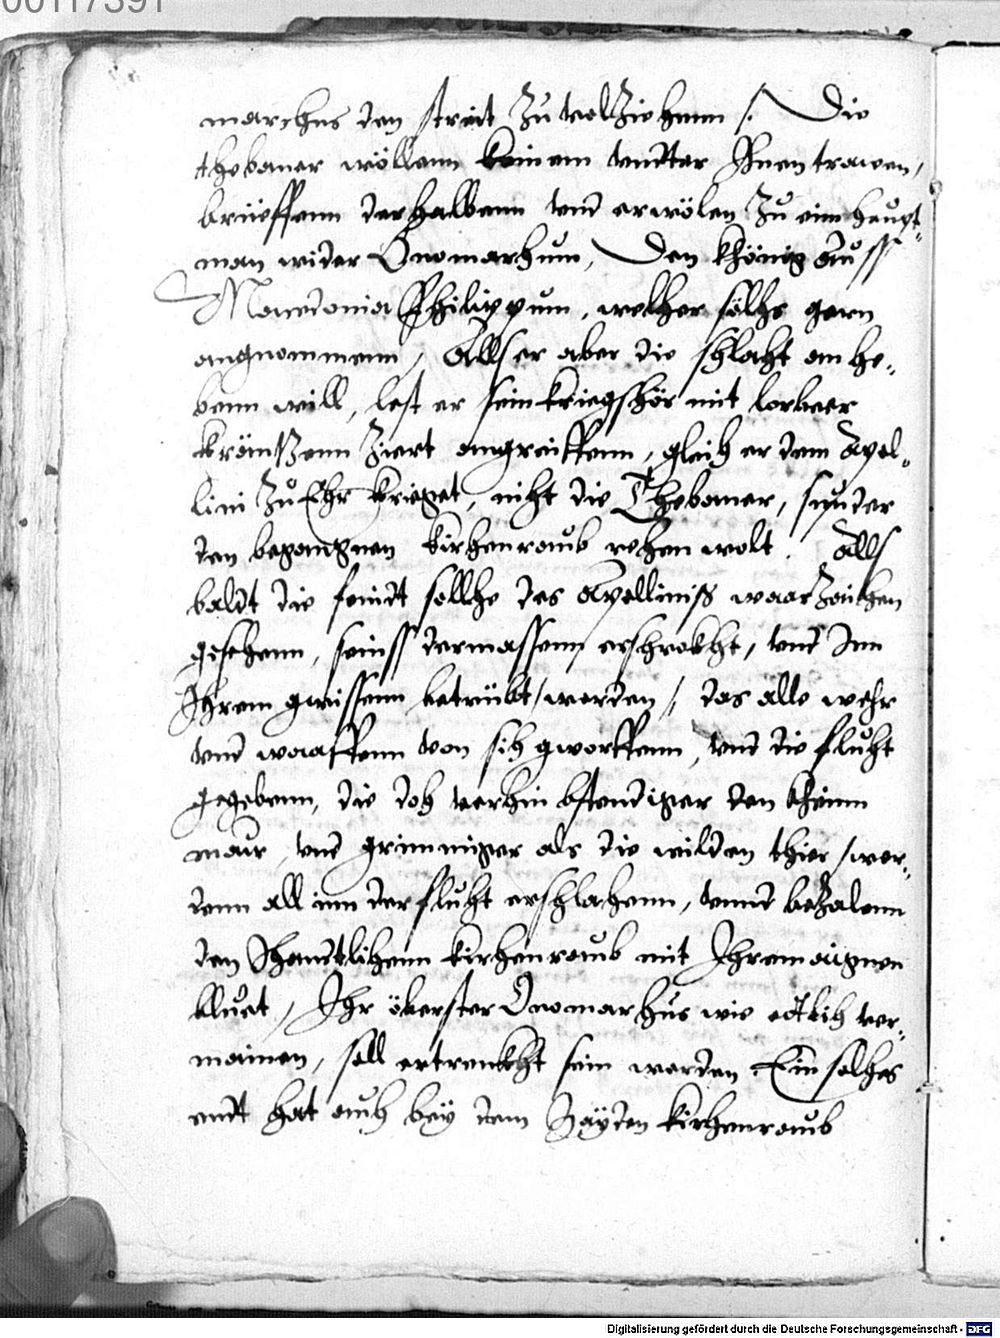 00117391
marchus den streit Zu volZiehenn /. Die
thebaner wöllenn keinem vndter Jhnen trawen,
brüeffenn derhalbenn vnd erwölen Zu eim haupt-
man wider Onomarhum, Den khönig auss
Macedonia Philippum, welher sölhs gern
angnommenn, Alls er aber die shlaht an he-
benn will, lest er sein kriegshör mit lorbeer
kräntZenn Ziert angreiffenn, gleih er dem Apol-
lini Zu Ehr krieget, niht die Thebaner, sunder
den begangnen kirhenraub rehen wolt. Alls
baldt die feindt sollhe des Apollinis warZeichen
gesehenn, seinss dermassenn ershrokht, vnd Jnn
Jhrem gwissenn betrübt worden, das alle wehr
vnd waaffenn von sih gworffenn, vnd die fluht
gegebenn, die doh vorhin bstendiger den kheinn
maur, vnd grimmiger als die wilden thier, wer-
denn all inn der fluht ershlahenn, vnnd beZalenn
den Shandtlihenn kirhenraub mit Jhrem aignen
bluet, Jhr öberster Onomarhus wie etlich ver-
mainen, soll ertrenkht sein worden Ein solhes
endt hat auh bey dem Hayden kirhenraub
Digitalisierung gefördert durch die Deutsche Forschungsgemeinschaft - DFG